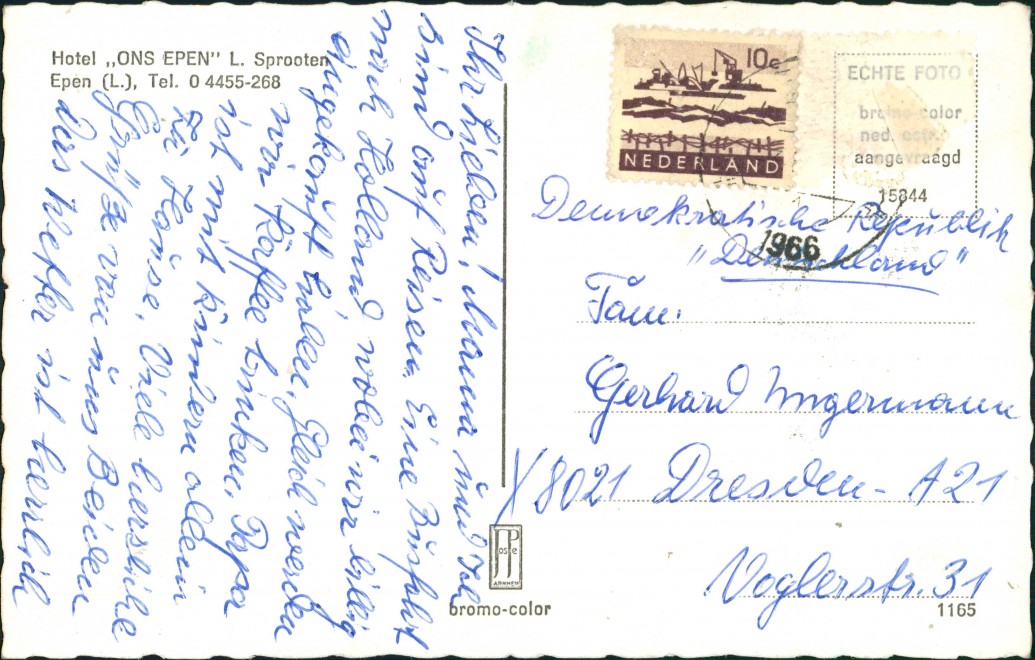 Hotel „ONS EPEN” L. Sprooten
Epen (L.), Tel. 0 4455-268
Ihr Lieben! Mama und Ich
sind auf Reisen. Eine Busfahrt
nach Holland, wobei wir billig
eingekauft haben. Gleich werden
wir Kaffee trinken. Papa
ist mit Kindern allein
zu Hause. Viele herzliche
Grüße von uns Beiden
Das Wetter ist herrlich
10c
NEDERLAND
ECHTE FOTO
bromo-color
ned. octr.
aangevraagd
15844
1966
Demokratische Republik
"Deutschland"
Fam.
Gerhard Ungermann
X 8021 Dresden - A 21
Voglerstr. 31
JosPé
ARNHEM
bromo-color
1165